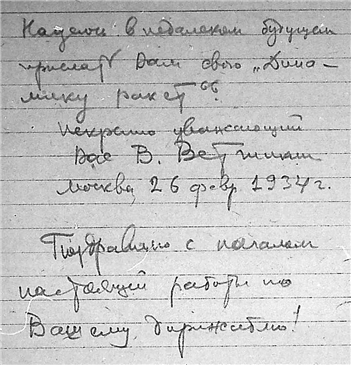 Надеюсь в недалеком будущем
прислать Вам свою „Дина-
мику ракет“.
Искренно уважающий
Вас В. Ветчинкин
Москва, 26 февр. 1934 г.
Поздравляю с началом
настоящей работы по
Вашему дирижаблю!